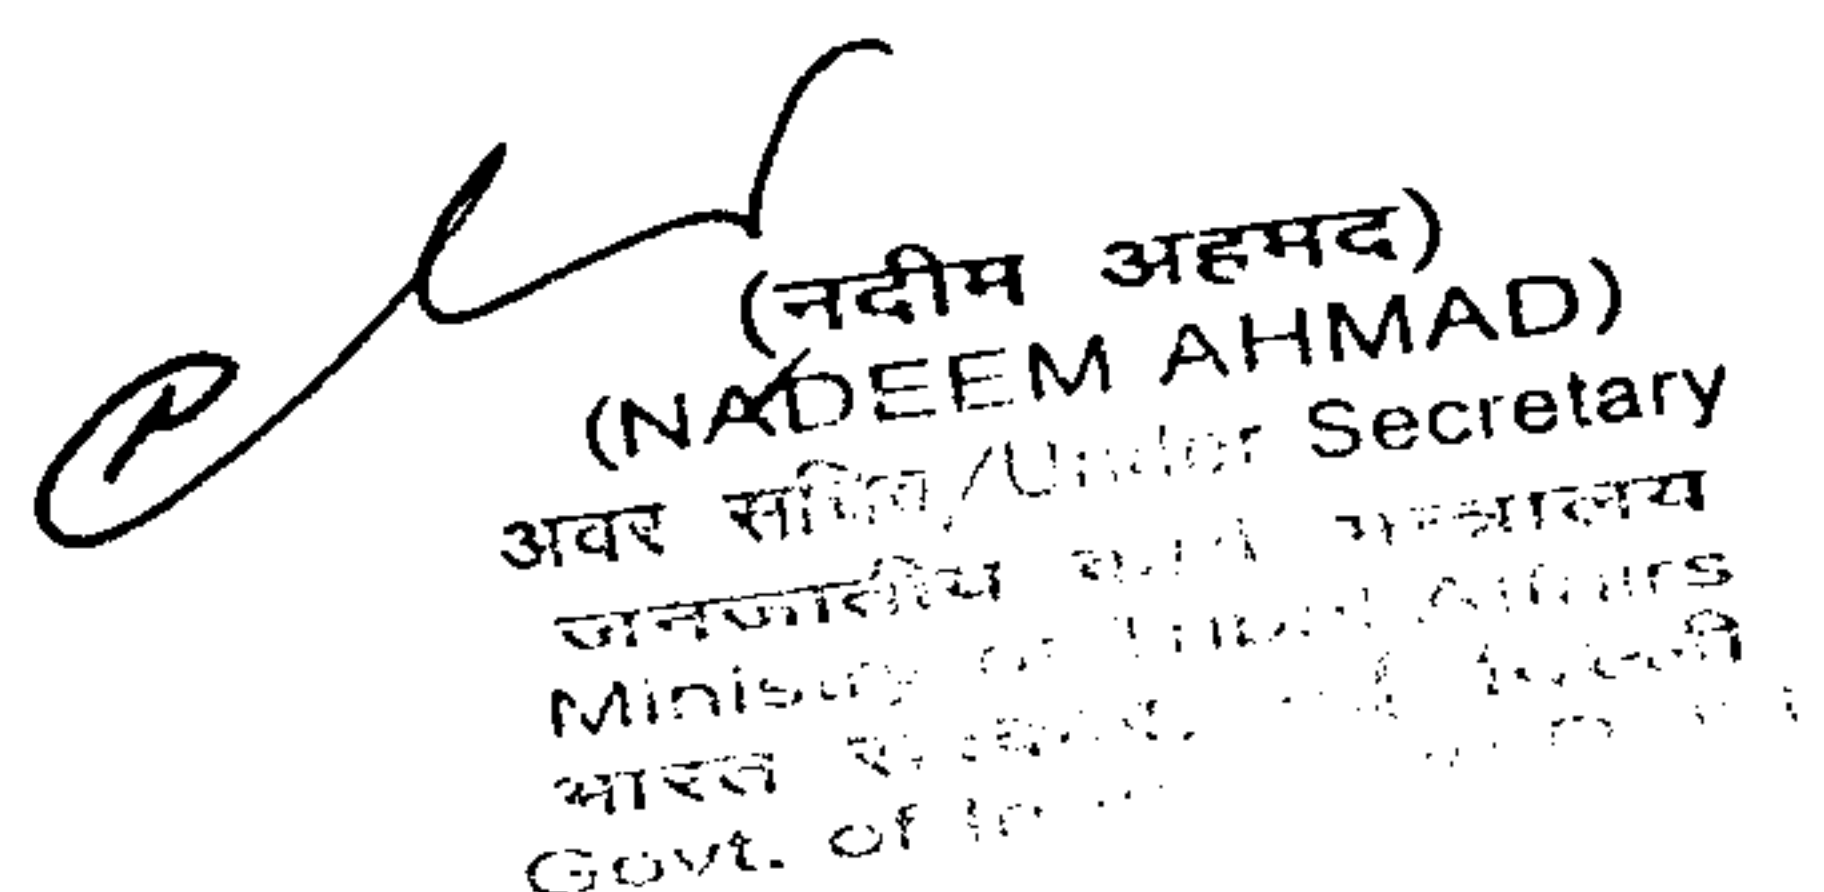 (नदीम अहमद)
(NADEEM AHMAD)
अवर सचिव/Under Secretary
जनजातीय कार्य मन्त्रालय
Ministry of Tribal Affairs
भारत सरकार, नई दिल्ली
Govt. of